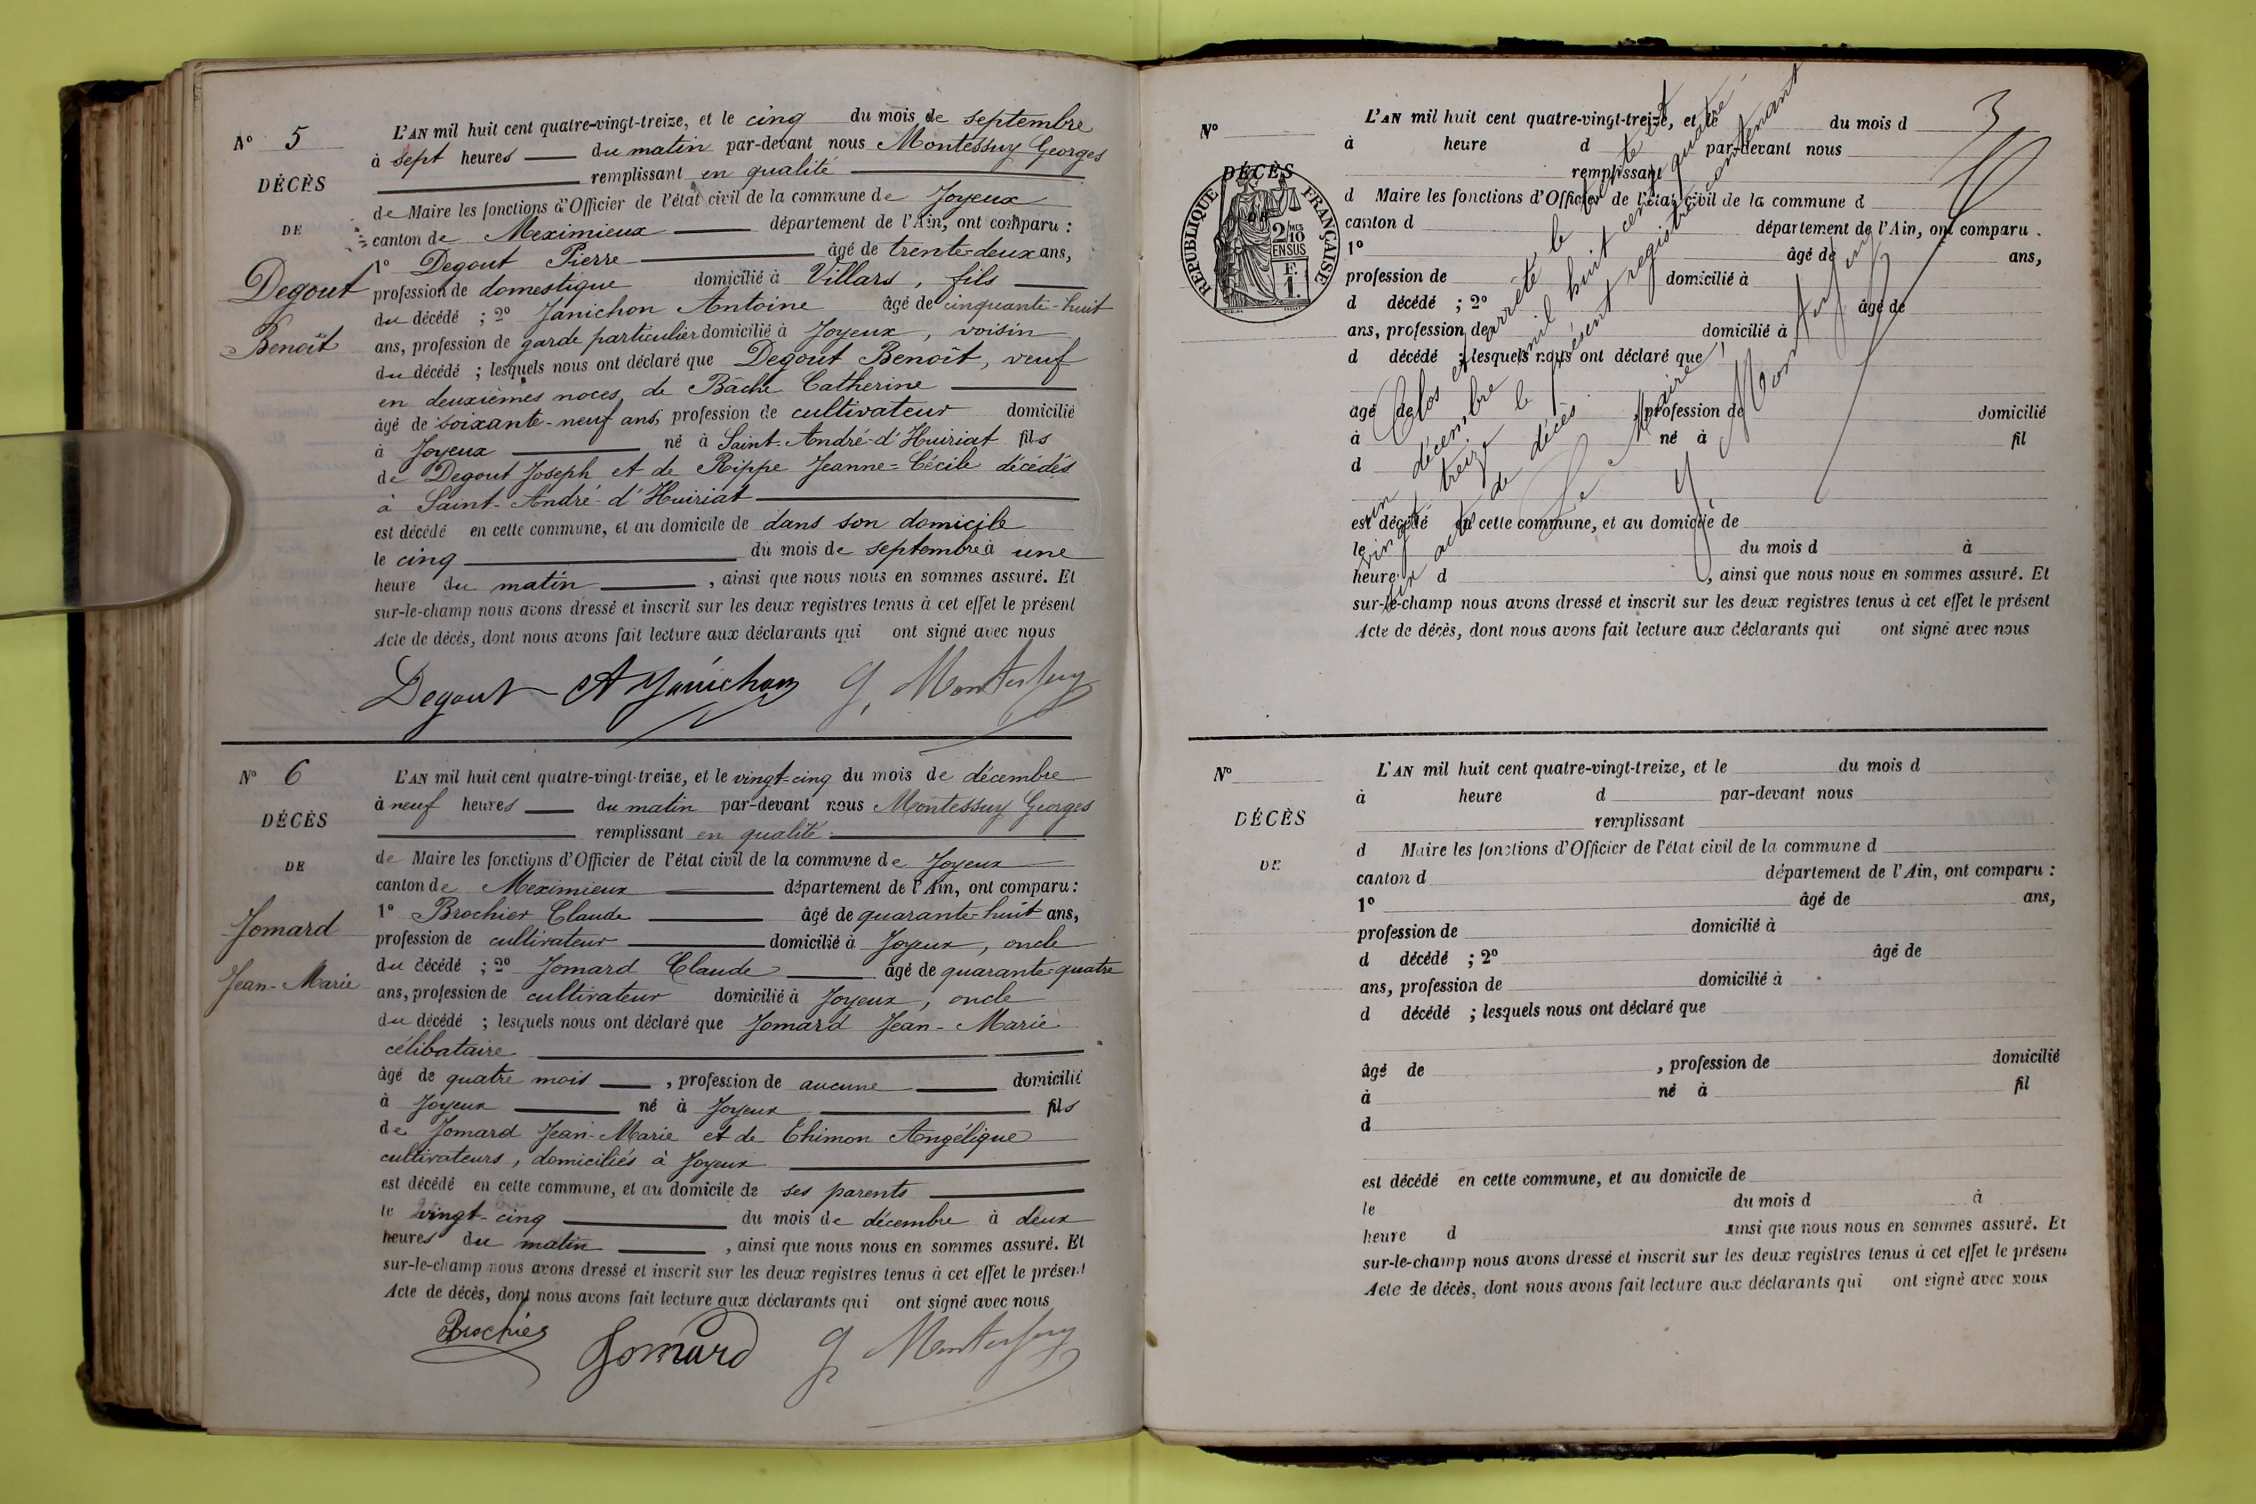 N° 5
DÉCÈS
DE
Degout
Benoît
L'AN mil huit cent quatre-vingt-treize, et le cinq du mois de septembre
à sept heures du matin par-devant nous Montessuy Georges
remplissant en qualité
de Maire les fonctions d'Officier de l'état civil de la commune de Joyeux
canton de Meximieux département de l'Ain, ont comparu :
1° Degout Pierre âgé de trente-deux ans,
profession de domestique domicilié à Villars, fils
du décédé ; 2° Janichon Antoine âgé de cinquante-huit
ans, profession de garde particulier domicilié à Joyeux, voisin
du décédé ; lesquels nous ont déclaré que Degout Benoît, veuf
en deuxièmes noces, de Bâche Catherine
âgé de soixante-neuf ans, profession de cultivateur domicilié
à Joyeux né à Saint-André-d'Huiriat fils
de Degout Joseph et de Rippe Jeanne=Cécile décédés
à Saint-André-d'Huiriat
est décédé en cette commune, et au domicile de dans son domicile
le cinq du mois de septembre à une
heure du matin , ainsi que nous nous en sommes assuré. Et
sur-le-champ nous avons dressé et inscrit sur les deux registres tenus à cet effet le présent
Acte de décès, dont nous avons fait lecture aux déclarants qui ont signé avec nous
Degout A Janichon G, Montessuy
N° 6
DÉCÈS
DE
Jomard
Jean-Marie
L'AN mil huit cent quatre-vingt-treize, et le vingt-cinq du mois de décembre
à neuf heures du matin par-devant nous Montessuy Georges
remplissant en qualité
de Maire les fonctions d'Officier de l'état civil de la commune de Joyeux
canton de Meximieux département de l'Ain, ont comparu :
1° Brochier Claude âgé de quarante-huit ans,
profession de cultivateur domicilié à Joyeux, oncle
du décédé ; 2° Jomard Claude âgé de quarante-quatre
ans, profession de cultivateur domicilié à Joyeux, oncle
du décédé ; lesquels nous ont déclaré que Jomard Jean-Marie
célibataire
âgé de quatre mois , profession de aucune domicilié
à Joyeux né à Joyeux fils
de Jomard Jean-Marie et de Thimon Angélique
cultivateurs, domiciliés à Joyeux
est décédé en cette commune, et au domicile de ses parents
le vingt-cinq du mois de décembre à deux
heures du matin , ainsi que nous nous en sommes assuré. Et
sur-le-champ nous avons dressé et inscrit sur les deux registres tenus à cet effet le présent
Acte de décès, dont nous avons fait lecture aux déclarants qui ont signé avec nous
Brochier Jomard G, Montessuy
3
N°
DÉCÈS
RÉPUBLIQUE FRANÇAISE
2/10 MES
EN SUS
F.
1.
L'AN mil huit cent quatre-vingt-treize, et le du mois d
à heure d par-devant nous
remplissant
d Maire les fonctions d'Officier de l'état civil de la commune d
canton d département de l'Ain, ont comparu .
1° âgé de ans,
profession de domicilié à
d décédé ; 2° âgé de
ans, profession de domicilié à
d décédé ; lesquels nous ont déclaré que
âgé de , profession de domicilié
à né à fil
d
est décédé en cette commune, et au domicile de
le du mois d à
heure d , ainsi que nous nous en sommes assuré. Et
sur-le-champ nous avons dressé et inscrit sur les deux registres tenus à cet effet le présent
Acte de décès, dont nous avons fait lecture aux déclarants qui ont signé avec nous
Clos et arrêté le trente et
un décembre mil huit cent quatre-
vingt-treize le présent registre contenant
six actes de décès
Le Maire
G, Montessuy
N°
DÉCÈS
DE
L'AN mil huit cent quatre-vingt-treize, et le du mois d
à heure d par-devant nous
remplissant
d Maire les fonctions d'Officier de l'état civil de la commune d
canton d département de l'Ain, ont comparu :
1° âgé de ans,
profession de domicilié à
d décédé ; 2° âgé de
ans, profession de domicilié à
d décédé ; lesquels nous ont déclaré que
âgé de , profession de domicilié
à né à fil
d
est décédé en cette commune, et au domicile de
le du mois d à
heure d ainsi que nous nous en sommes assuré. Et
sur-le-champ nous avons dressé et inscrit sur les deux registres tenus à cet effet le présent
Acte de décès, dont nous avons fait lecture aux déclarants qui ont signé avec nous